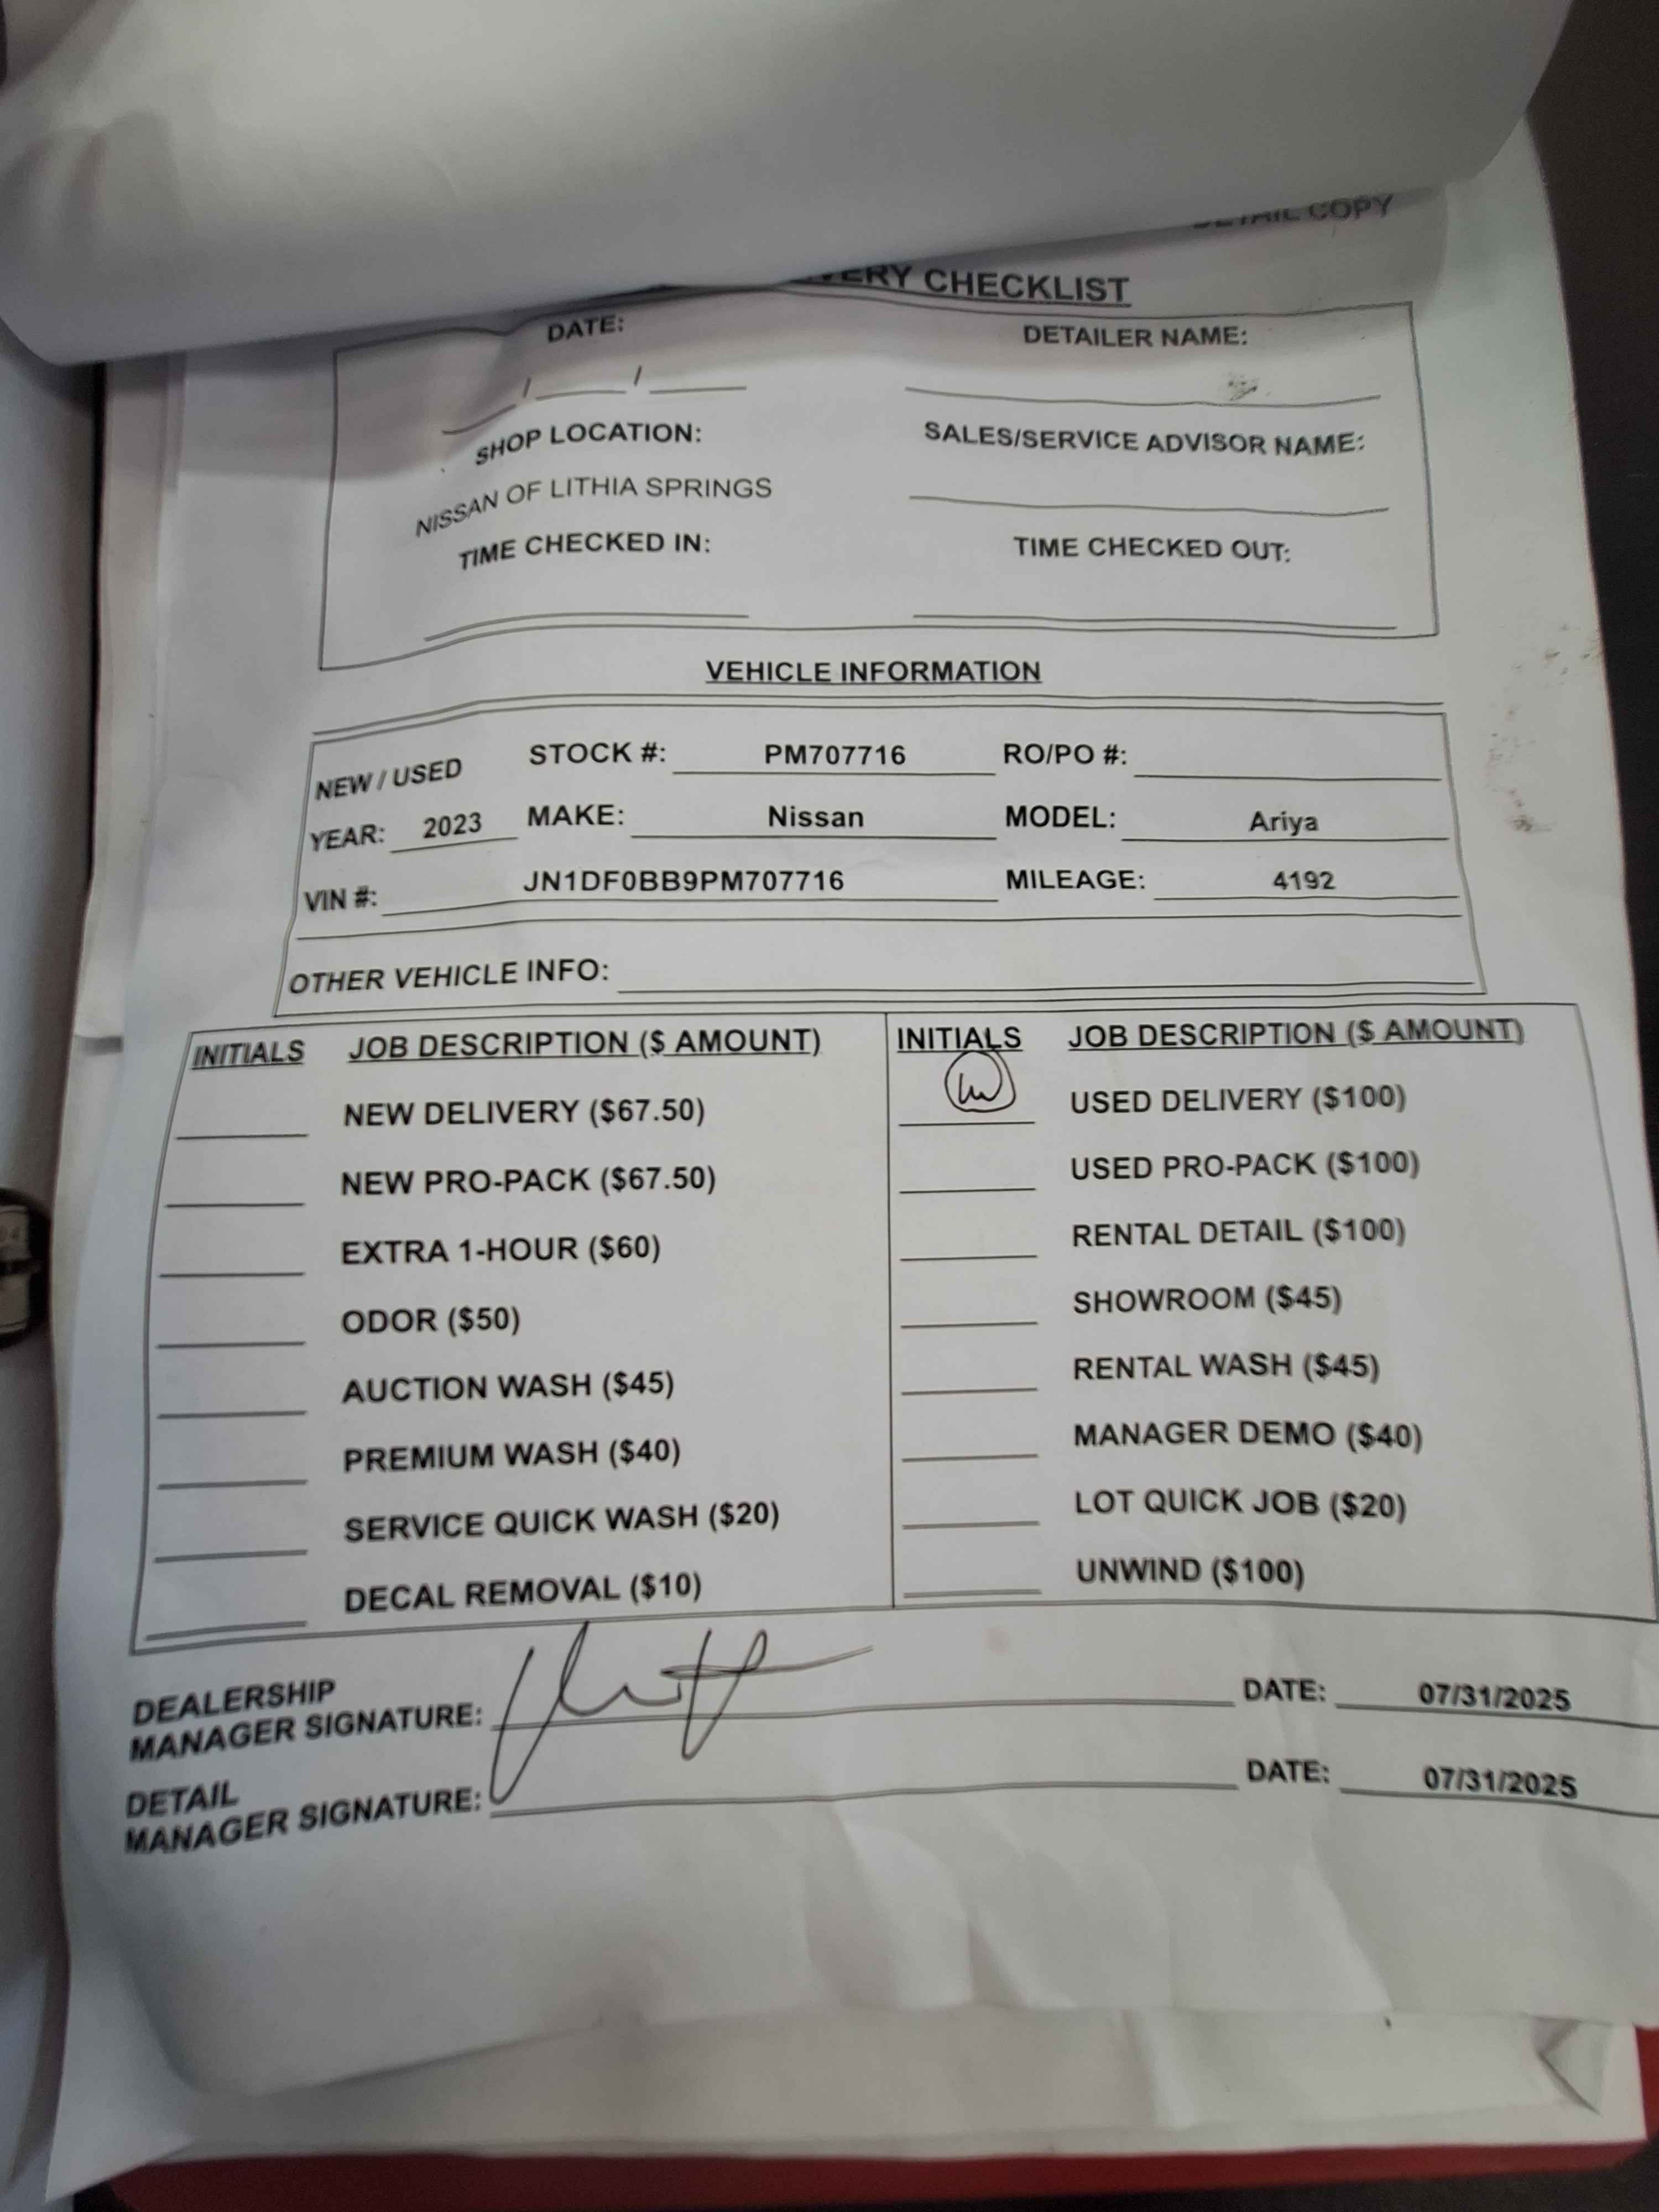 DETAIL COPY
CHECKLIST
DATE:
DETAILER NAME:
/ /
SHOP LOCATION:
SALES/SERVICE ADVISOR NAME:
NISSAN OF LITHIA SPRINGS
TIME CHECKED IN:
TIME CHECKED OUT:
VEHICLE INFORMATION
NEW / USED STOCK #: PM707716 RO/PO #:
YEAR: 2023 MAKE: Nissan MODEL: Ariya
VIN #: JN1DF0BB9PM707716 MILEAGE: 4192
OTHER VEHICLE INFO:
INITIALS JOB DESCRIPTION ($ AMOUNT)
NEW DELIVERY ($67.50)
NEW PRO-PACK ($67.50)
EXTRA 1-HOUR ($60)
ODOR ($50)
AUCTION WASH ($45)
PREMIUM WASH ($40)
SERVICE QUICK WASH ($20)
DECAL REMOVAL ($10)
INITIALS JOB DESCRIPTION ($ AMOUNT)
USED DELIVERY ($100)
USED PRO-PACK ($100)
RENTAL DETAIL ($100)
SHOWROOM ($45)
RENTAL WASH ($45)
MANAGER DEMO ($40)
LOT QUICK JOB ($20)
UNWIND ($100)
DEALERSHIP
MANAGER SIGNATURE: DATE: 07/31/2025
DETAIL
MANAGER SIGNATURE: DATE: 07/31/2025